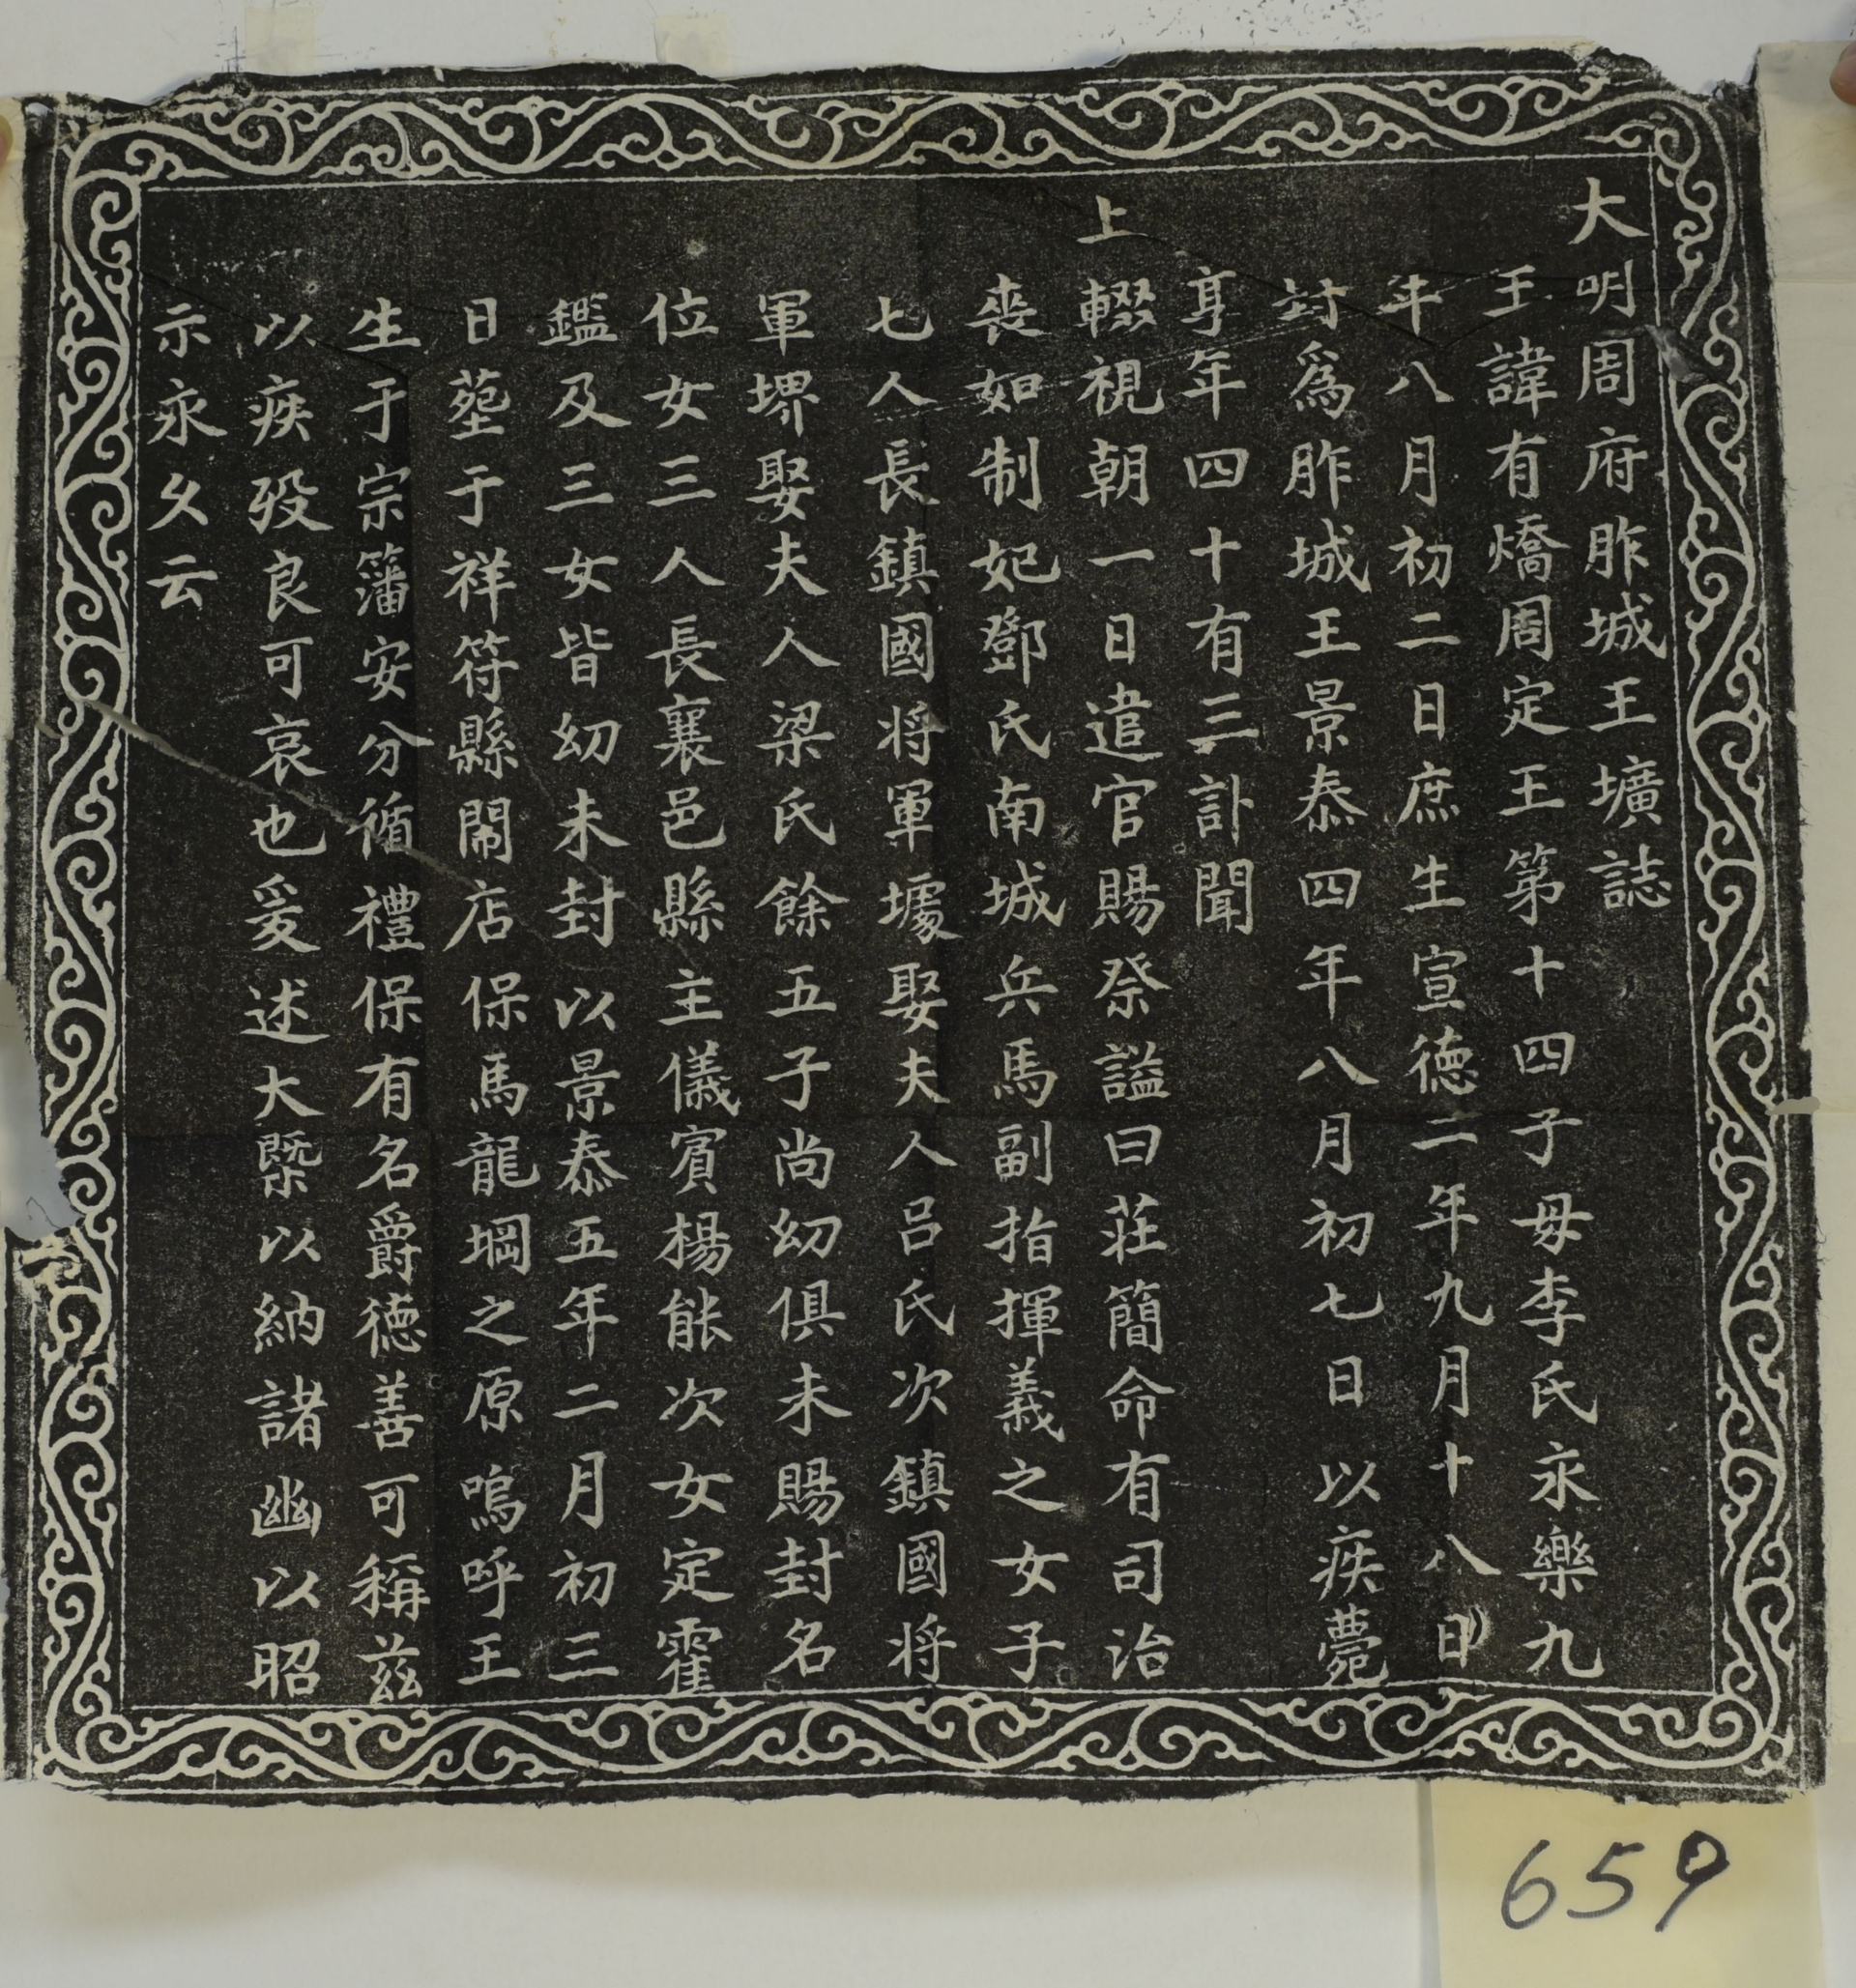 大明周府胙城王壙誌
王諱有燆周定王第十四子母李氏永樂九
年八月初二日庶生宣德二年九月十八日
封為胙城王景泰四年八月初七日以疾薨
享年四十有三訃聞
上輟視朝一日遣官賜祭謚曰莊簡命有司治
喪如制妃鄧氏南城兵馬副指揮義之女子
七人長鎮國将軍㙺娶夫人呂氏次鎮國将
軍堺娶夫人梁氏餘五子尚幼俱未賜封名
位女三人長襄邑縣主儀賓楊能次女定霍
鑑及三女皆幼未封以景泰五年二月初三
日塟于祥符縣閙店保馬龍堈之原嗚呼王
生于宗籓安分循禮保有名爵德善可稱兹
以疾歿良可哀也爰述大槩以納諸幽以昭
示永久云
659